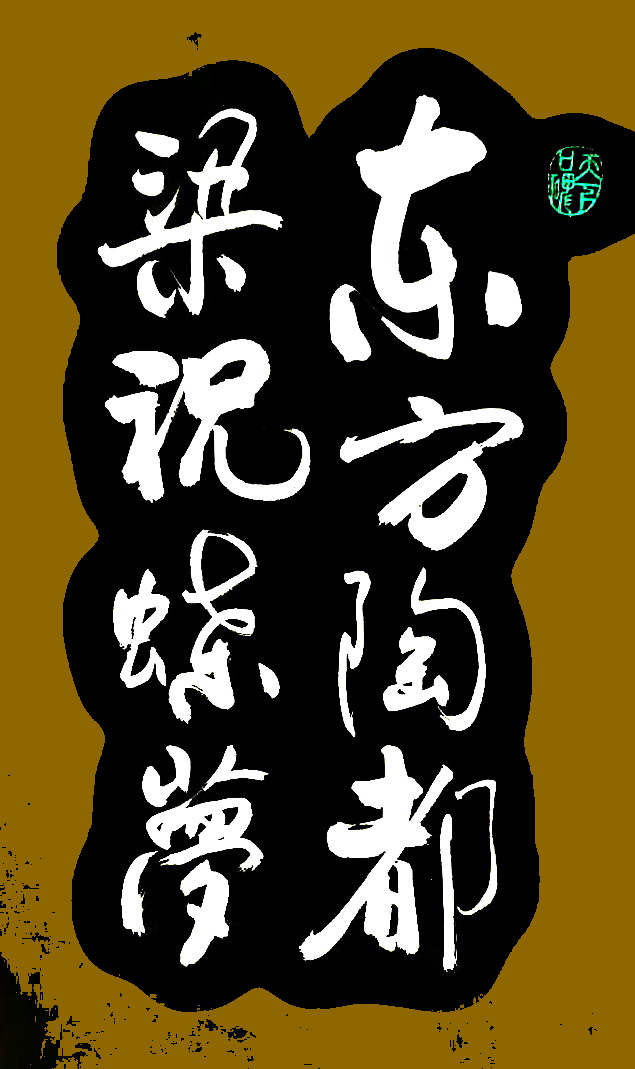 东方陶都
梁祝蝶夢